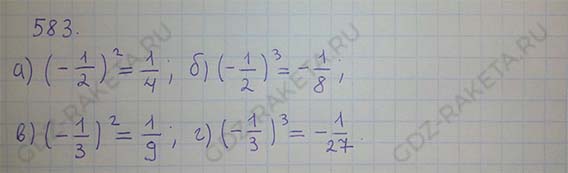 583.
а) (-1/2)² = 1/4; б) (-1/2)³ = -1/8;
в) (-1/3)² = 1/9; г) (-1/3)³ = -1/27.
GDZ-RAKETA.RU
GDZ-RAKETA.RU
GDZ-RAKETA.RU